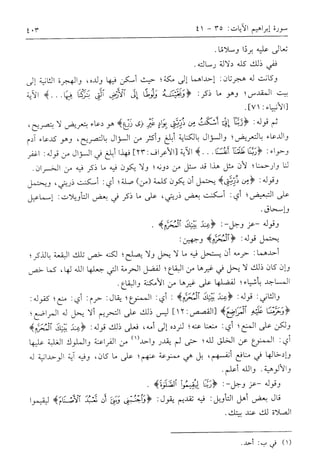 سورة إبراهيم الآيات: ٣٥ - ٤١
٤٠٣
تعالى عليه بردًا وسلامًا.
ففي ذلك كله دلالة رسالته.
وكانت له هجرتان: إحداهما إلى مكة؛ حيث أسكن فيها ولده، والهجرة الثانية إلى
بيت المقدس؛ وهو ما ذكر: ﴿وَنَجَّيْنَاهُ وَلُوطًا إِلَى الْأَرْضِ الَّتِي بَارَكْنَا فِيهَا...﴾ الآية
[الأنبياء: ٧١].
ثم قوله: ﴿رَّبَّنَا إِنِّي أَسْكَنتُ مِن ذُرِّيَّتِي بِوَادٍ غَيْرِ ذِي زَرْعٍ﴾ هو دعاء بتعريض لا بتصريح،
والدعاء بالتعريض؛ والسؤال بالكناية أبلغ وأكثر من السؤال بالتصريح، وهو كدعاء آدم
وحواء: ﴿رَبَّنَا ظَلَمْنَا أَنفُسَنَا...﴾ الآية [الأعراف: ٢٣] فهذا أبلغ في السؤال من قوله: اغفر
لنا وارحمنا؛ لأن مثل هذا قد سئل من دونه؛ ولا يكون فيه ما ذكر فيه من الخسران.
وقوله: ﴿مِن ذُرِّيَّتِي﴾ يحتمل أن يكون كلمة (من) صلة؛ أي: أسكنت ذريتي، ويحتمل
على التبعيض؛ أي: أسكنت بعض ذريتي، على ما ذكر في بعض التأويلات: إسماعيل
وإسحاق.
وقوله -عز وجل-: ﴿عِندَ بَيْتِكَ الْمُحَرَّمِ﴾ .
يحتمل قوله: ﴿الْمُحَرَّمِ﴾ وجهين:
أحدهما: حرمه أن يستحل فيه ما لا يحل ولا يصلح؛ لكنه خص تلك البقعة بالذكر؛
وإن كان ذلك لا يحل في غيرها من البقاع؛ لفضل الحرمة التي جعلها الله لها، كما خص
المساجد بأشياء؛ لفضلها على غيرها من الأمكنة والبقاع.
والثاني: قوله: ﴿عِندَ بَيْتِكَ الْمُحَرَّمِ﴾: أي: الممنوع؛ يقال: حرم: أي: منع؛ كقوله:
﴿وَحَرَّمْنَا عَلَيْهِ الْمَرَاضِعَ﴾ [القصص: ١٢] ليس ذلك على التحريم ألا يحل له المراضع؛
ولكن على المنع؛ أي: منعنا عنه؛ لنرده إلى أمه، فعلى ذلك قوله: ﴿عِندَ بَيْتِكَ الْمُحَرَّمِ﴾
أي: الممنوع عن الخلق لله؛ حتى لم يقدر واحد(١) من الفراعنة والملوك الغلبة عليها
وإدخالها في منافع أنفسهم، بل هي ممنوعة عنهم؛ على ما كان، وفيه آية الوحدانية له
والألوهية. والله أعلم.
وقوله -عز وجل-: ﴿رَبَّنَا لِيُقِيمُوا الصَّلَاةَ﴾ .
قال بعض أهل التأويل: فيه تقديم يقول: ﴿وَاجْنُبْنِي وَبَنِيَّ أَن نَّعْبُدَ الْأَصْنَامَ﴾ ليقيموا
الصلاة لك عند بيتك.
(١) في ب: أحد.